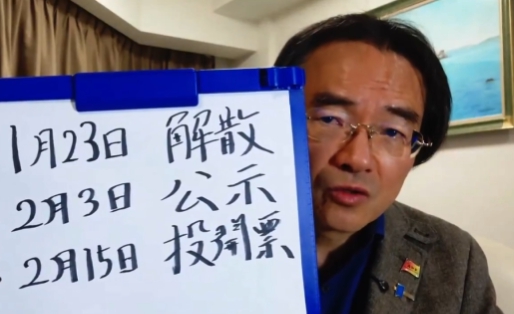 1月23日 解散
2月3日 公示
2月15日 投開票